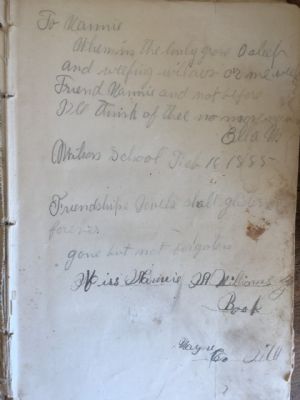 To Nannie
When in the lonly grave I sleep
and weeping willows or me
Friend Nannie and not before
I'll think of thee no more
Ella
School Feb 16 1885
Friendships Jewels shall
forever
gone but not forgotten
Miss Nannie Williams
Book
Wayne
Co